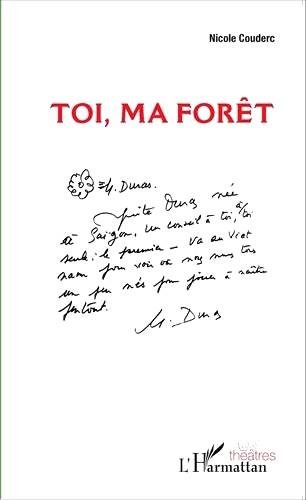 Nicole Couderc
TOI, MA FORÊT
M. Duras.
petite Duras née à
à Saigon, un conseil à toi, toi
seule : le premier – va au Viet
nam pour voir où nous
un peu nés pour jouer à naître
partout.
M. Duras
théâtres
L'Harmattan